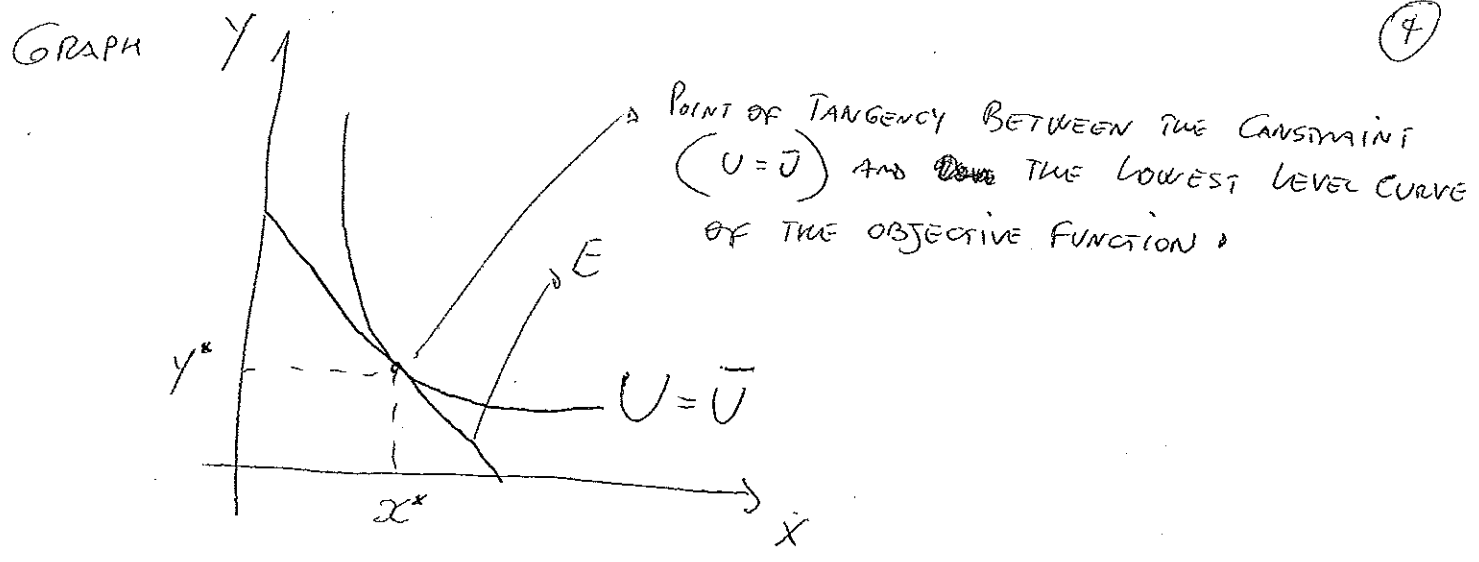 GRAPH
Y
4
POINT OF TANGENCY BETWEEN THE CONSTRAINT
(U = Ū) AND THE LOWEST LEVEL CURVE
OF THE OBJECTIVE FUNCTION.
E
Y*
U = Ū
x*
X